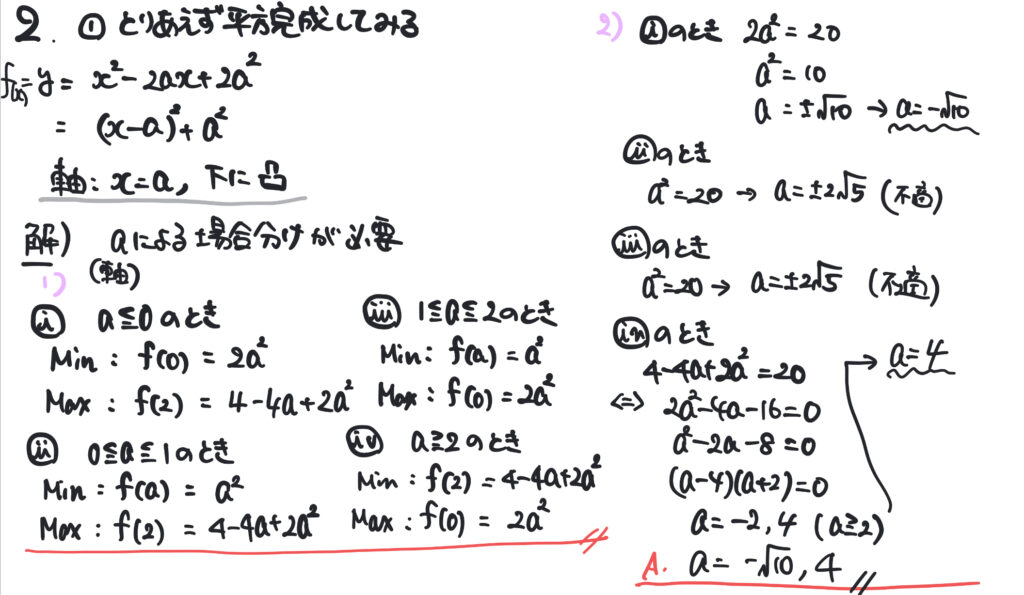 2. ① とりあえず平方完成してみる
f(x)=y= x²-2ax+2a²
= (x-a)²+a²
軸: x=a, 下に凸
解) aによる場合分けが必要
(軸)
1)
ⓘ a≦0のとき
Min : f(0) = 2a²
Max : f(2) = 4-4a+2a²
ⅱ 0≦a≦1のとき
Min : f(a) = a²
Max : f(2) = 4-4a+2a²
ⅲ 1≦a≦2のとき
Min : f(a) = a²
Max : f(0) = 2a²
ⅳ a≧2のとき
Min : f(2) = 4-4a+2a²
Max : f(0) = 2a²
2) ⓘのとき 2a²=20
a²=10
a=±√10 → a=-√10
ⅱのとき
a²=20 → a=±2√5 (不適)
ⅲのとき
a²=20 → a=±2√5 (不適)
ⅳのとき
4-4a+2a²=20
⇔ 2a²-4a-16=0
a²-2a-8=0
(a-4)(a+2)=0
a=-2, 4 (a≧2)
→ a=4
A. a= -√10, 4